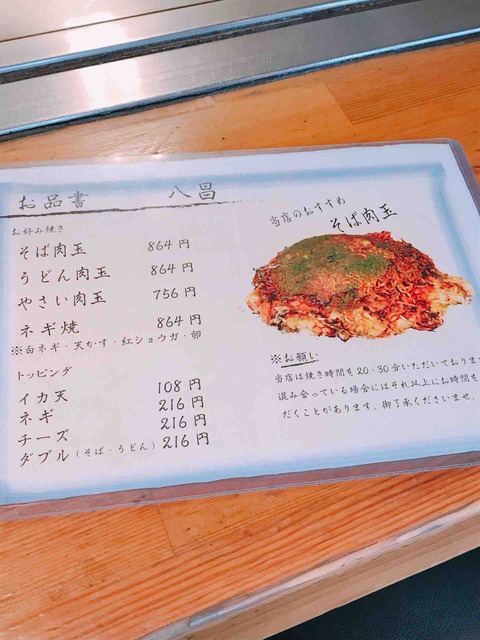 お品書 八昌
お好み焼き
そば肉玉 864円
うどん肉玉 864円
やさい肉玉 756円
ネギ焼 864円
※白ネギ・天かす・紅ショウガ・卵
トッピング
イカ天 108円
ネギ 216円
チーズ 216円
ダブル(そば・うどん) 216円
当店のおすすめ
そば肉玉
※お願い
当店は焼き時間を20・30分いただいております
混み合っている場合にはそれ以上にお時間を
だくことがあります。御了承くださいませ。